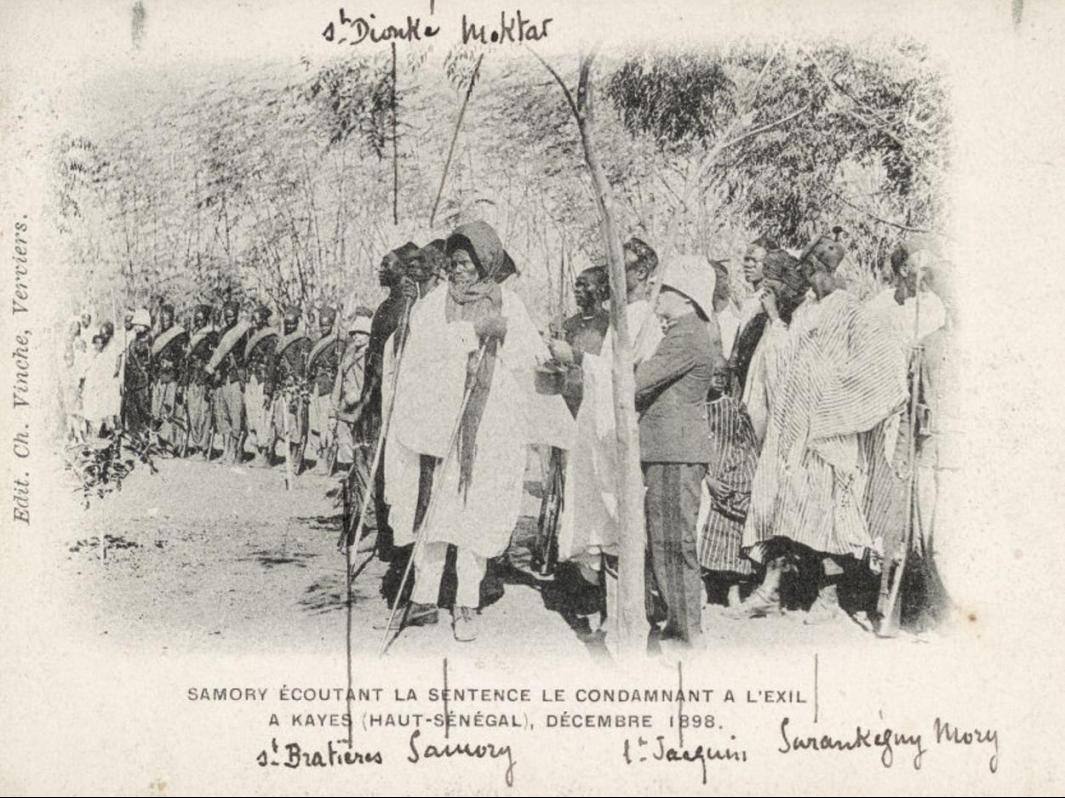 st Dionké Moktar
Edit. Ch. Vinche, Verviers.
SAMORY ÉCOUTANT LA SENTENCE LE CONDAMNANT A L'EXIL
A KAYES (HAUT-SÉNÉGAL), DÉCEMBRE 1898.
st Bratières Samory lt Jacquin Sarankégny Mory